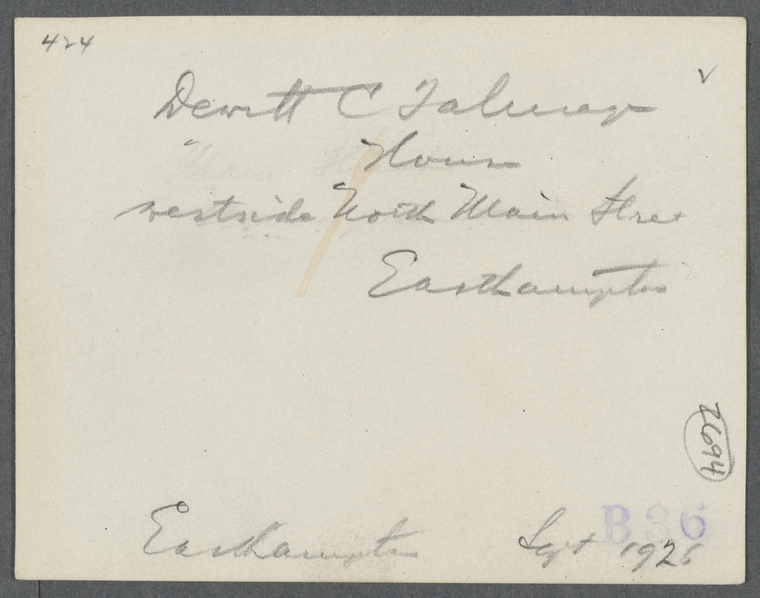 424
v
Dewitt C Talmage
House
westside North Main Stree
Easthampton
2694
B86
Easthampton Sept 1925